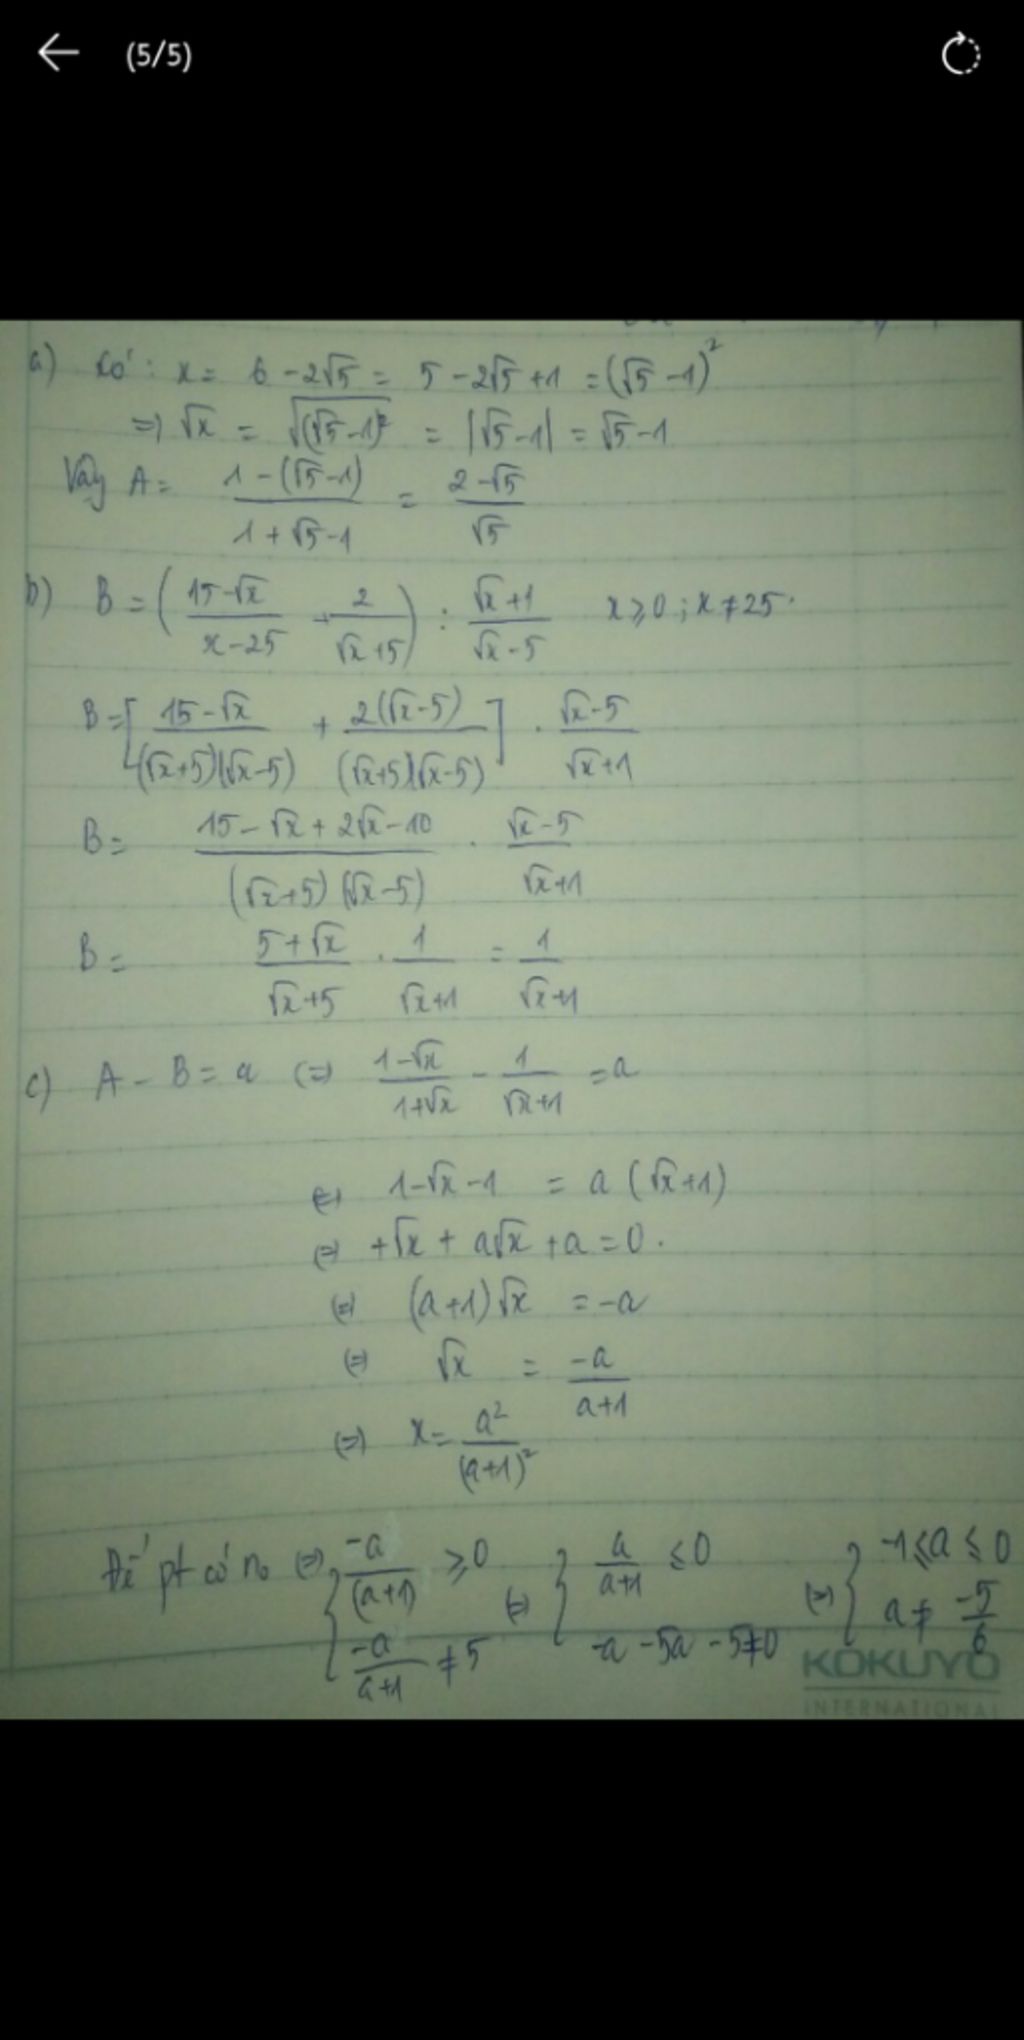 (5/5)
a) Có: x = 6 - 2√5 = 5 - 2√5 + 1 = (√5 - 1)²
=> √x = √(√5-1)² = |√5-1| = √5-1
Vậy A = (1 - (√5-1))/(1 + √5 - 1) = (2-√5)/√5
b) B = ((15-√x)/(x-25) + 2/(√x+5)) : (√x+1)/(√x-5) x ≥ 0 ; x ≠ 25.
B = [(15-√x)/((√x+5)(√x-5)) + 2(√x-5)/((√x+5)(√x-5))] . (√x-5)/(√x+1)
B = (15-√x+2√x-10)/((√x+5)(√x-5)) . (√x-5)/(√x+1)
B = (5+√x)/(√x+5) . 1/(√x+1) = 1/(√x+1)
c) A - B = a (=) (1-√x)/(1+√x) - 1/(√x+1) = a
(=) 1-√x-1 = a(√x+1)
(=) +√x + a√x + a = 0.
(=) (a+1)√x = -a
(=) √x = -a/(a+1)
(=) x = a²/(a+1)²
Để pt có no (=) { -a/(a+1) ≥ 0 (=) { a/(a+1) ≤ 0 (=) { -1 ≤ a ≤ 0
-a/(a+1) ≠ 5 -a - 5a - 5 ≠ 0 a ≠ -5/6
KOKUYO
INTERNATIONAL